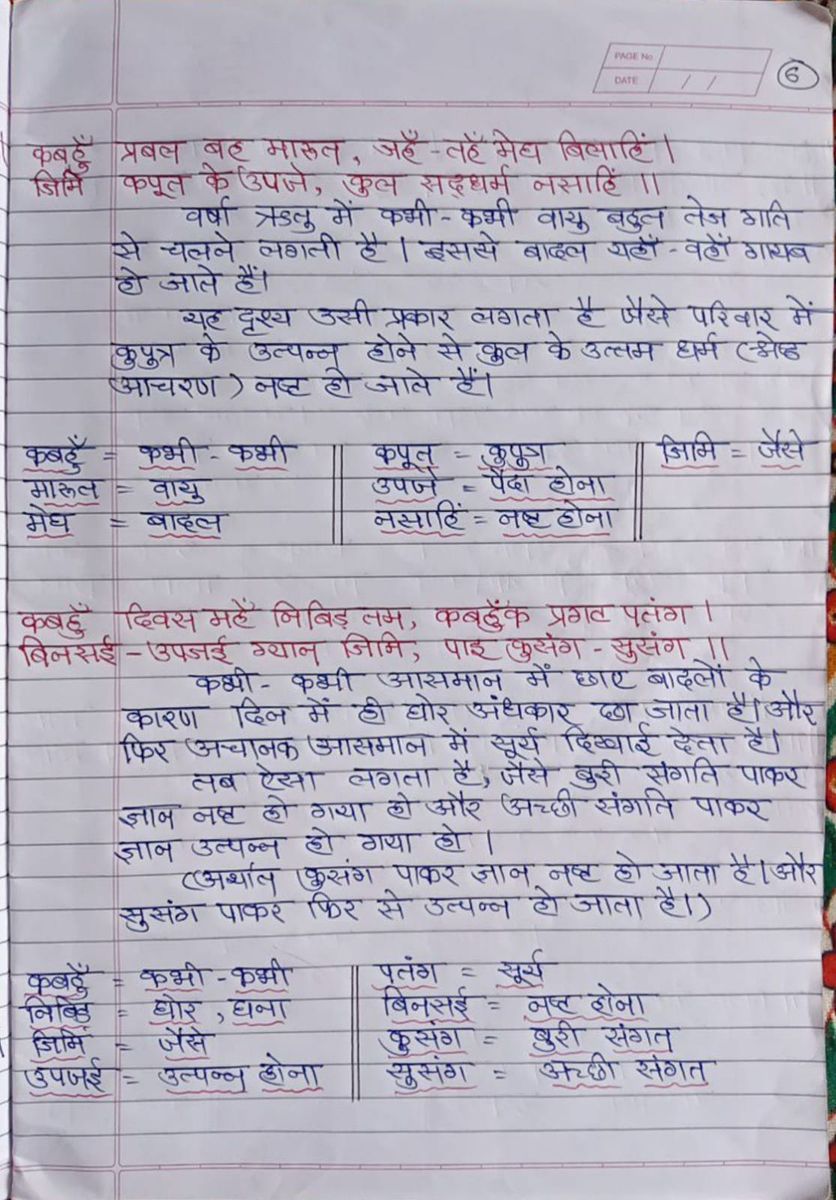 PAGE No
DATE / /
6
कबहुँ प्रबल बह मारूत, जहँ-तहँ मेघ बिलाहिं।
जिमि कपूत के उपजे, कुल सद्धर्म नसाहिं ।।
वर्षा ऋतु में कभी-कभी वायु बहुत तेज गति
से चलने लगती है। इससे बादल यहाँ-वहाँ गायब
हो जाते हैं।
यह दृश्य उसी प्रकार लगता है जैसे परिवार में
कुपुत्र के उत्पन्न होने से कुल के उत्तम धर्म (श्रेष्ठ
आचरण) नष्ट हो जाते हैं।
कबहुँ = कभी-कभी कपूत = कुपुत्र जिमि = जैसे
मारूत = वायु उपजे = पैदा होना
मेघ = बादल नसाहिं = नष्ट होना
कबहुँ दिवस महँ निबिड़ तम, कबहुँक प्रगट पतंग ।
बिनसई-उपजई ग्यान जिमि, पाइ कुसंग-सुसंग ।।
कभी-कभी आसमान में छाए बादलों के
कारण दिन में ही घोर अंधकार छा जाता है। और
फिर अचानक आसमान में सूर्य दिखाई देता है।
तब ऐसा लगता है, जैसे बुरी संगति पाकर
ज्ञान नष्ट हो गया हो और अच्छी संगति पाकर
ज्ञान उत्पन्न हो गया हो ।
(अर्थात कुसंग पाकर ज्ञान नष्ट हो जाता है। और
सुसंग पाकर फिर से उत्पन्न हो जाता है।)
कबहुँ = कभी-कभी पतंग = सूर्य
निबिड़ = घोर, घना बिनसई = नष्ट होना
जिमि = जैसे कुसंग = बुरी संगत
उपजई = उत्पन्न होना सुसंग = अच्छी संगत